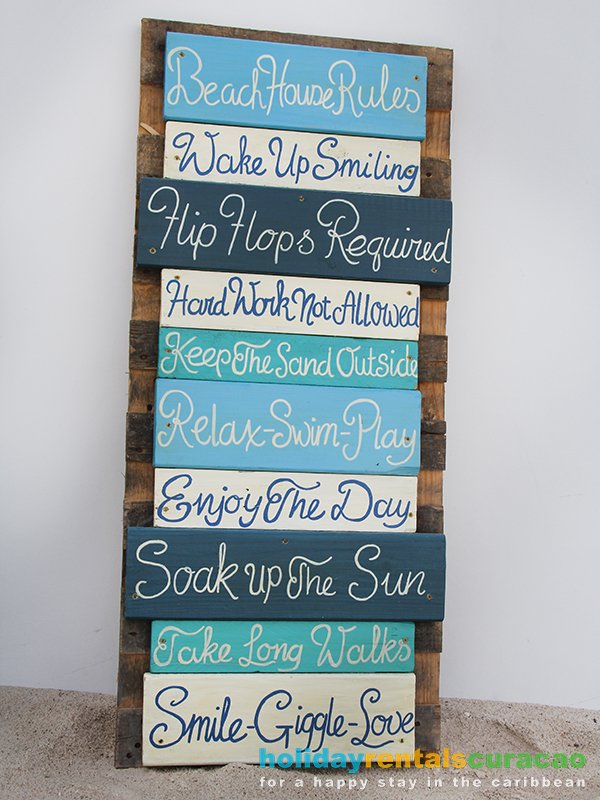 Beach House Rules
Wake Up Smiling
Flip Flops Required
Hard Work Not Allowed
Keep The Sand Outside
Relax-Swim-Play
Enjoy The Day
Soak up The Sun
Take Long Walks
Smile-Giggle-Love
holidayrentalscuracao
for a happy stay in the caribbean